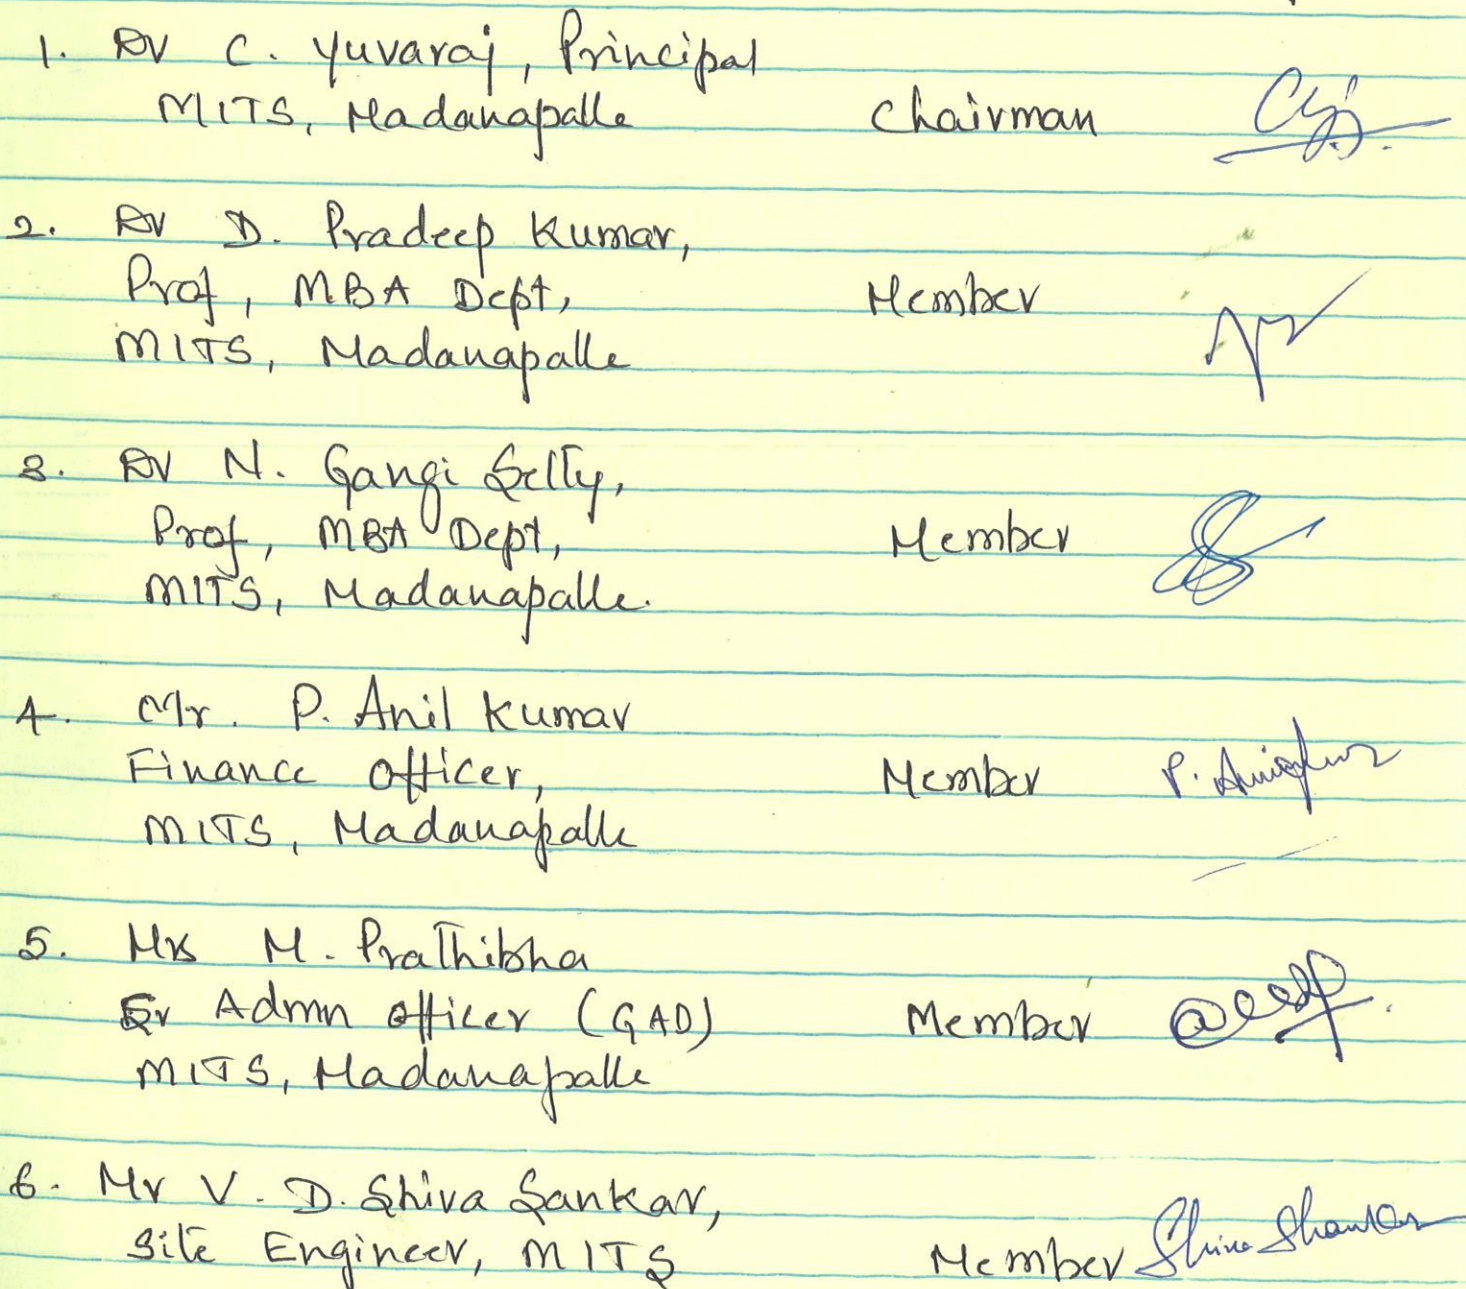 1. Dr C. Yuvaraj, Principal
MITS, Madanapalle Chairman
2. Dr D. Pradeep Kumar,
Prof, MBA Dept, Member
MITS, Madanapalle
3. Dr N. Gangi Setty,
Prof, MBA Dept, Member
MITS, Madanapalle.
4. Mr. P. Anil Kumar
Finance Officer, Member
MITS, Madanapalle
5. Mrs M. Prathibha
Sr Admn Officer (GAD) Member
MITS, Madanapalle
6. Mr V. D. Shiva Sankar,
Site Engineer, MITS Member Shiva Shankar